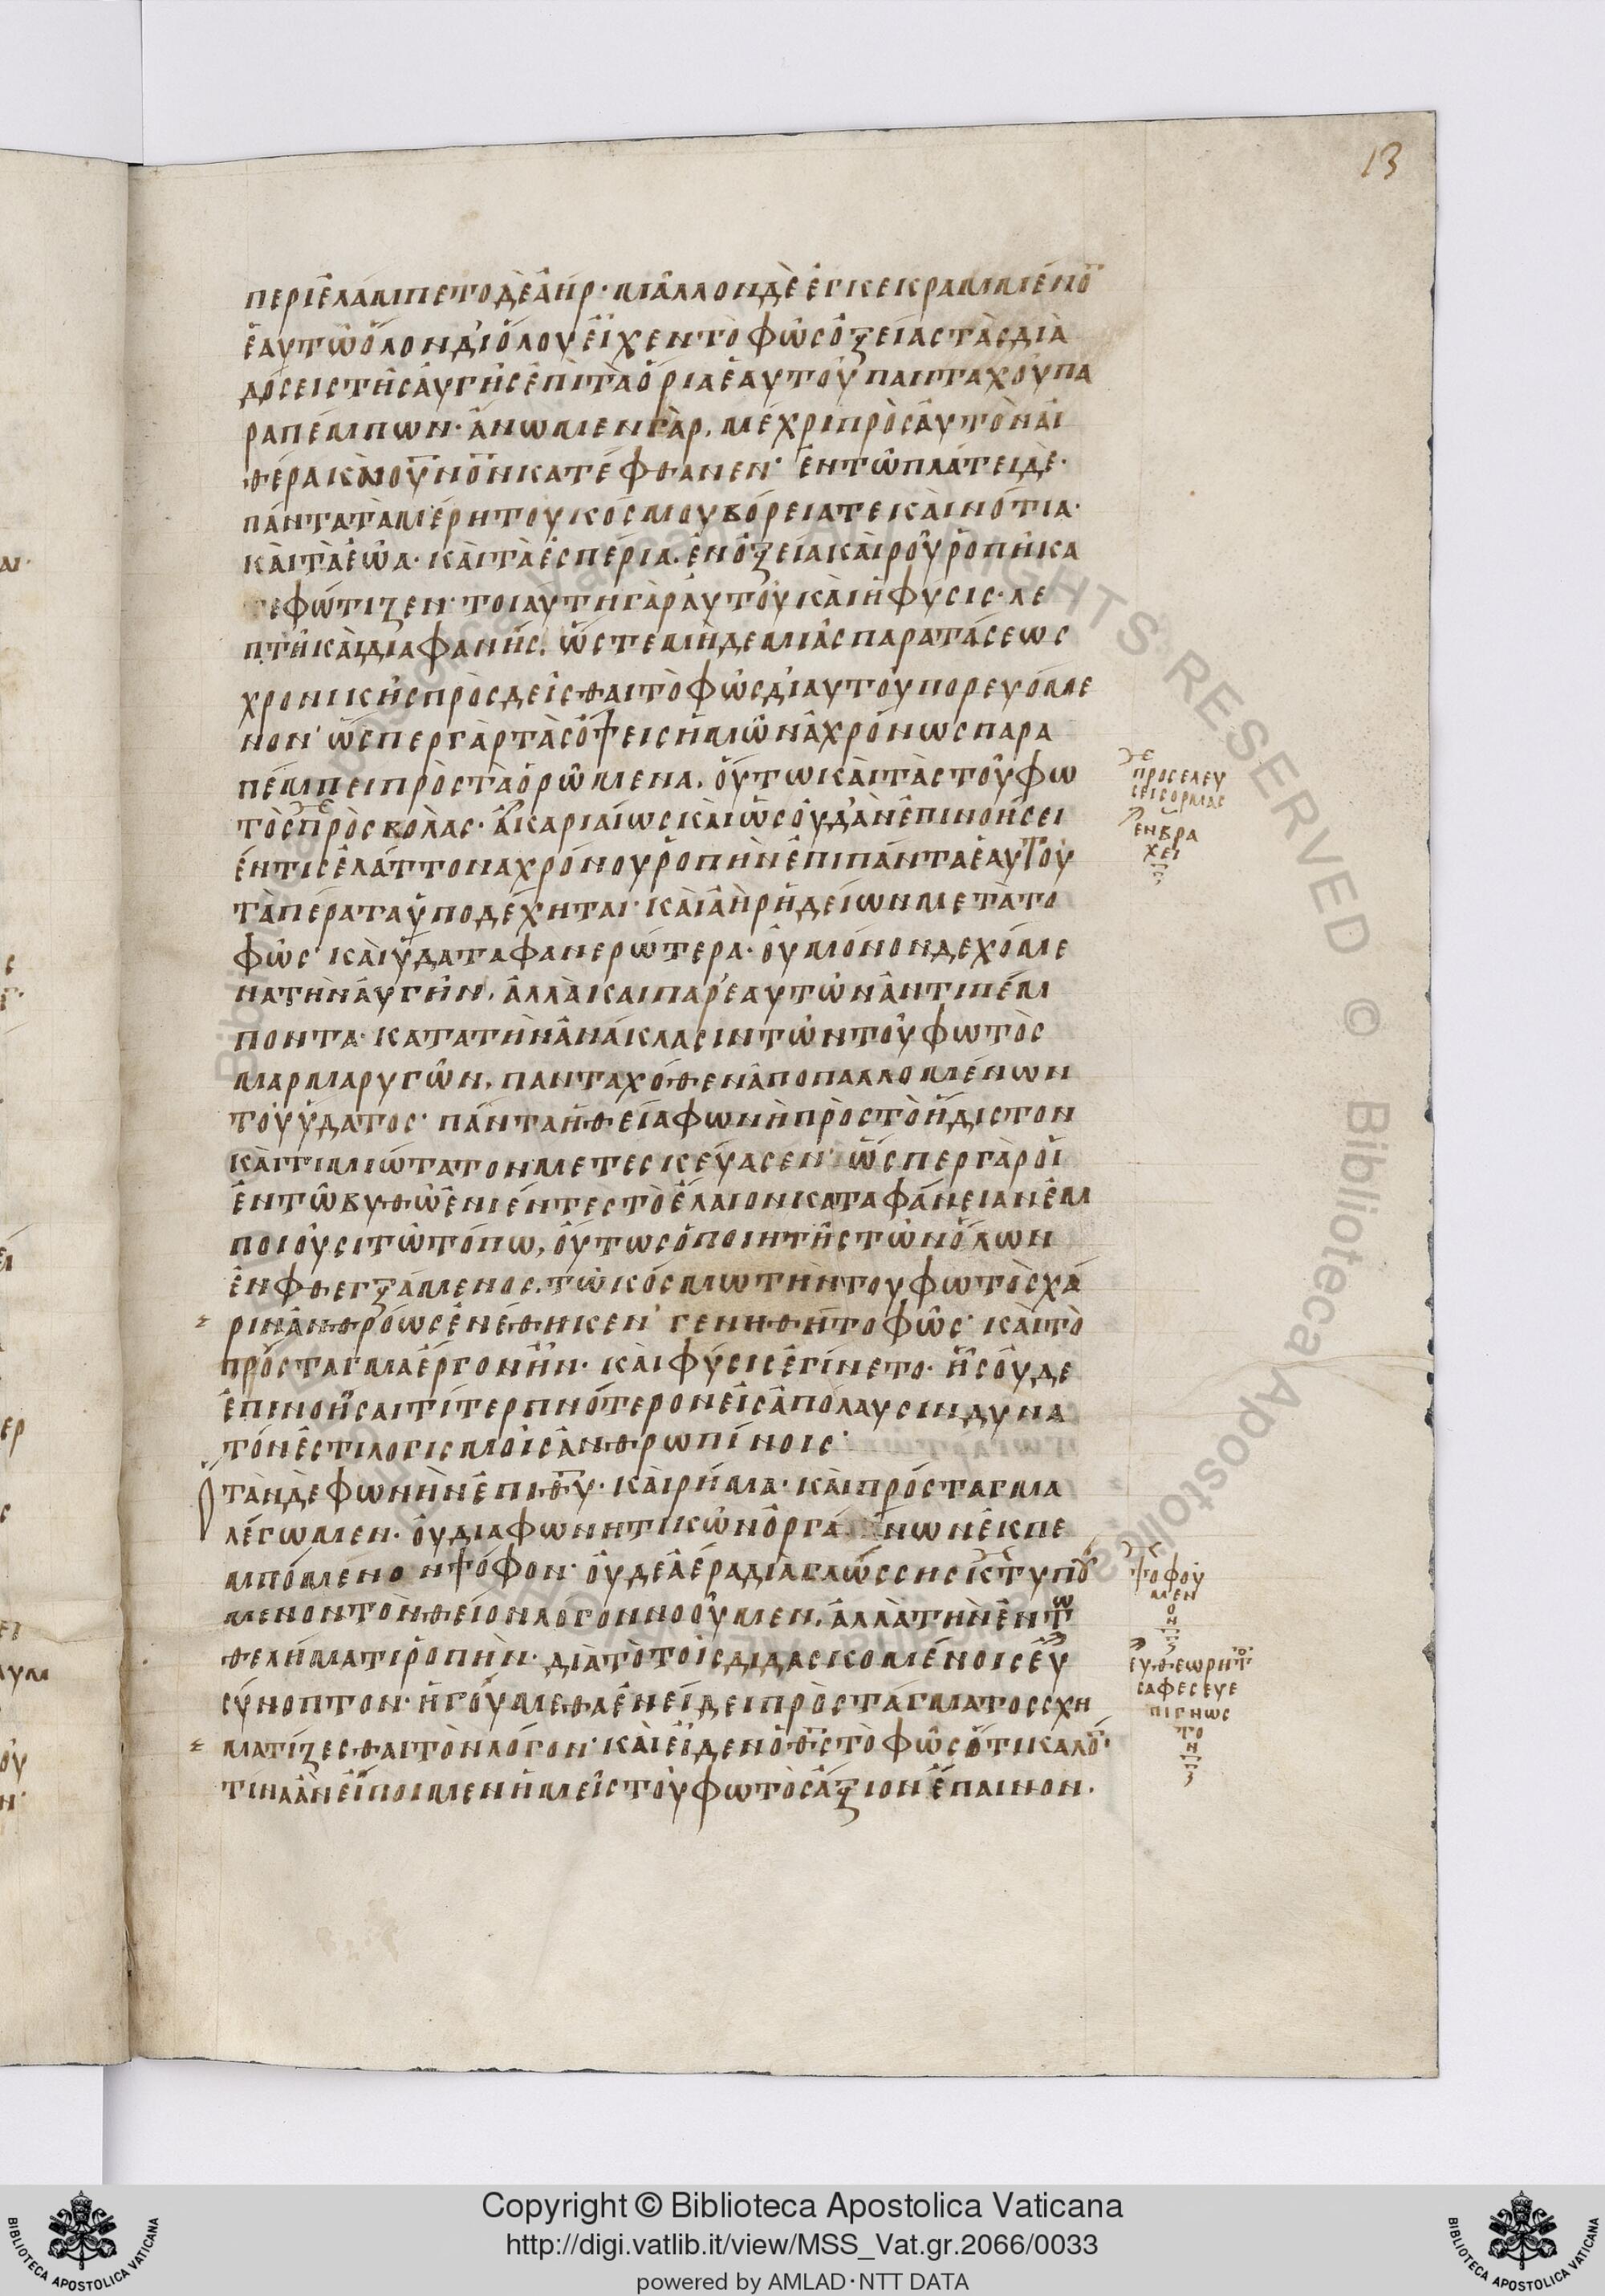 13
περιἐλάμπετο δὲ ἀὴρ· μᾶλλον δὲ ἐγκεκραμμένο̅
ἑαυτῶ ὅλον δι' ὅλου εἶχεν τὸ φῶς ὀξείας τὰς δια
δόσεις τῆς ἀυγῆς ἐπὶ τὰ ὅρια ἑαυτοῦ πανταχοῦ πα
ραπέμπων· ἄνω μεν γὰρ, μέχρι πρὸς ἀυτὸν ἀι
θέρα κὰι ου̅νο̅ν κατέφθανεν· ἐν τῶ πλάτει δε·
πάντα τὰ μέρη τοῦ κόσμου βόρεια τε κὰι νότια·
κὰι τὰ ἑῶα· κὰι τὰ ἑσπέρια. ἐν ὀξεία κὰιροῦ ῥοπῆ κα
τεφώτιζεν· τοιαύτη γὰρ ἀυτοῦ κὰι ἡ φύσις· λε
πτὴ κὰι διαφανὴς. ὥστε μὴδεμιᾶς παρατάσεως
χρονικῆς πρὸσδεῖσθαι τὸ φῶς δι' αυτοῦ πορευόμε
νον· ὥσπερ γὰρ τὰς ὄψεις ἡμῶν ἀχρόνως παρα
πέμπει πρὸς τὰ ὁρώμενα. ὅυτω κὰι τὰς τοῦ φω
τὸς πρὸσβολὰς· ἀκαριαίως κὰι ὡς ὀυδ' ἂν ἐπινοήσει
ἐν τις ἐλάττονα χρόνου ῥοπὴν ἐπι πάντα ἑαυτοῦ
τὰ πέρατα ὑποδέχηται· κὰι ἀὴρ ἡδείων μετὰ το
φῶς· κὰι ὕδατα φανερώτερα· ὀυ μόνον δεχόμε
να τὴν ἀυγὴν, ἀλλὰ και παρ' ἑαυτῶν ἀντιπέμ
ποντα· κατα τὴν ἀνάκλασιν τῶν τοῦ φωτὸς
μαρμαρυγῶν, πανταχόθεν ἀποπαλλομένων
τοῦ ὕδατος· πάντα ἡ θεία φωνὴ πρὸς τὸ ἥδιστον
κὰι τιμιώτατον μετεσκεύασεν· ὥσπερ γὰρ ὁι
ἐν τῶ βυθῶ ἐνιέντες τὸ ἔλαιον καταφάνειαν ἐμ
ποιοῦσι τῶ τόπω, ὅυτως ὁ ποιητὴς τῶν ὅλων
ἐνφθεγξάμενος. τῶ κόσμω τὴν του φωτὸς χά
ριν ἀνθρόως ἐνέθηκεν· γενηθήτο φῶς· κὰι τὸ
πρόσταγμα ἔργον ἦν· κὰι φύσις ἐγίνετο· ἧς ὀυδε
ἐπινοῆσαι τί τερπνότερον εἰς ἀπόλαυσιν δυνα
τόν ἐστι λογισμοῖς ἀνθρωπίνοις·
τὰν δε φωνὴν ἐπι θ̅υ̅· κὰι ρῆμα· κὰι πρόσταγμα
λέγωμεν· ὀυ δια φωνητικῶν ὀργάνων ἐκπε
μπόμενον ψόφον· ὀυδε ἀέρα διὰ γλώσσης κτυπού
μενον τὸν θεῖον λογον νοοῦμεν, ἀλλὰ τὴν ἐν τω
θελήματι ῥοπὴν· διὰ τὸ τοῖς διδασκομένοις ἐυ
σύνοπτον· ἡγούμεθα ἐν εἴδει πρὸστάγματος σχη
ματίζεσθαι τὸν λόγον· κὰι εἶδεν ὁ θ̅ς̅ τὸ φῶς ὅτι καλό̅·
τίνα ἂν εἴποιμεν ἡμεῖς τοῦ φωτὸς ἄξιον ἔπαινον.
προσελευ
σεις ορμας
ἐν βρα
χει
ψοφού
μεν
ο
ν
ευθεωρητ
σαφες ευε
πιγνωσ
το
ν